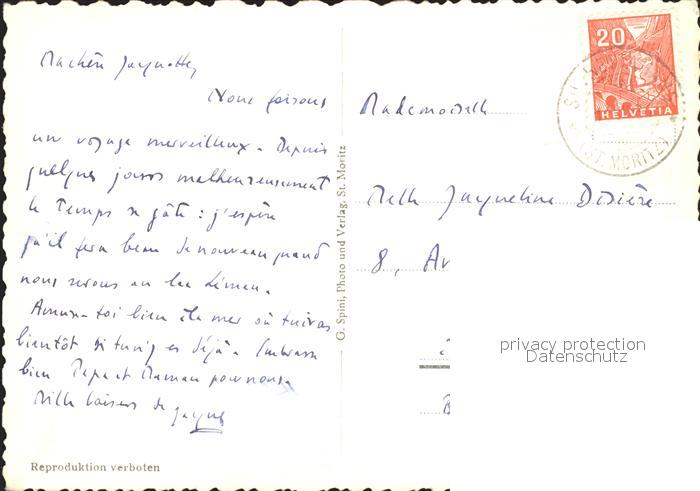 Ma chère Jacqueline,
Nous faisons
un voyage merveilleux. Depuis
quelques jours malheureusement
le temps se gâte : j'espère
qu'il fera beau de nouveau quand
nous serons au lac Léman.
Amuse-toi bien à la mer où tu iras
bientôt si tu n'y es déjà. Embrasse
bien Papa et Maman pour nous.
Mille baisers de
G. Spini, Photo und Verlag, St. Moritz
Reproduktion verboten
20
HELVETIA
(ST. MORITZ)
Mademoiselle
Melle Jacqueline Disière
8, Av
B
privacy protection
Datenschutz